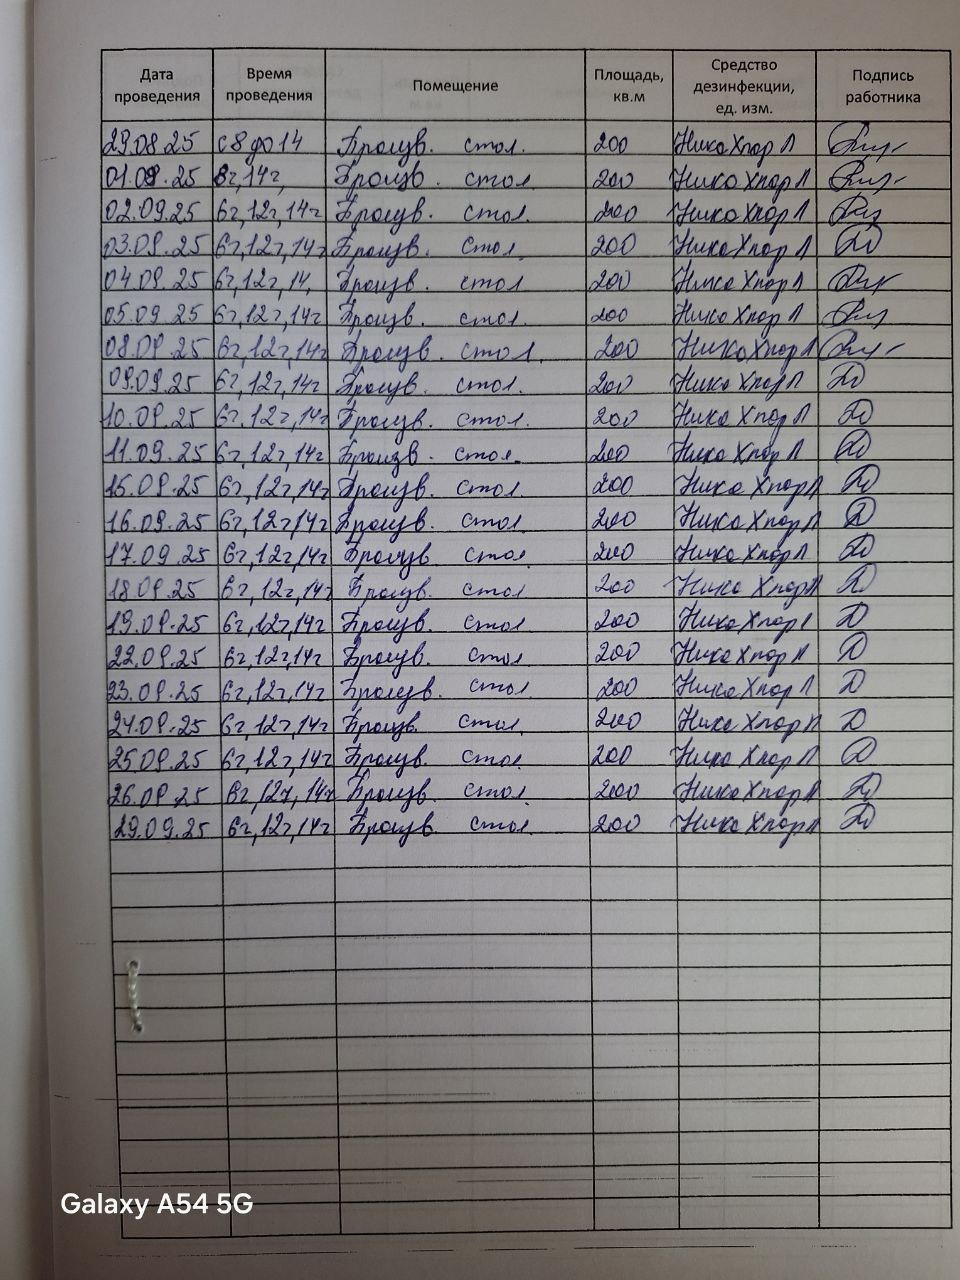 Дата проведения | Время проведения | Помещение | Площадь, кв.м | Средство дезинфекции, ед. изм. | Подпись работника
29.08.25 | с 8 до 14 | Произв. стол. | 200 | НикаХлор Л
01.09.25 | 8ч,14ч, | Произв. стол. | 200 | Ника Хлор Л
02.09.25 | 6ч,12ч,14ч | Произв. стол. | 200 | Ника Хлор Л
03.09.25 | 6ч,12ч,14ч | Произв. стол. | 200 | Ника Хлор Л
04.09.25 | 6ч,12ч,14, | Произв. стол | 200 | Ника Хлор Л
05.09.25 | 6ч,12ч,14ч | Произв. стол. | 200 | Ника Хлор Л
08.09.25 | 6ч,12ч,14ч | Произв. стол. | 200 | НикаХлор Л
09.09.25 | 6ч,12ч,14ч | Произв. стол. | 200 | Ника Хлор Л
10.09.25 | 6ч,12ч,14ч | Произв. стол. | 200 | Ника Хлор Л
11.09.25 | 6ч,12ч,14ч | Произв. стол. | 200 | Ника Хлор Л
15.09.25 | 6ч,12ч,14ч | Произв. стол. | 200 | Ника Хлор Л
16.09.25 | 6ч,12ч,14ч | Произв. стол | 200 | Ника Хлор Л
17.09.25 | 6ч,12ч,14ч | Произв. стол | 200 | Ника Хлор Л
18.09.25 | 6ч,12ч,14ч | Произв. стол | 200 | Ника Хлор Л
19.09.25 | 6ч,12ч,14ч | Произв. стол | 200 | Ника Хлор Л
22.09.25 | 6ч,12ч,14ч | Произв. стол | 200 | Ника Хлор Л
23.09.25 | 6ч,12ч,14ч | Произв. стол | 200 | Ника Хлор Л
24.09.25 | 6ч,12ч,14ч | Произв. стол. | 200 | Ника Хлор Л
25.09.25 | 6ч,12ч,14ч | Произв. стол. | 200 | Ника Хлор Л
26.09.25 | 6ч,12ч,14ч | Произв. стол. | 200 | Ника Хлор Л
29.09.25 | 6ч,12ч,14ч | Произв. стол. | 200 | Ника Хлор Л
Galaxy A54 5G